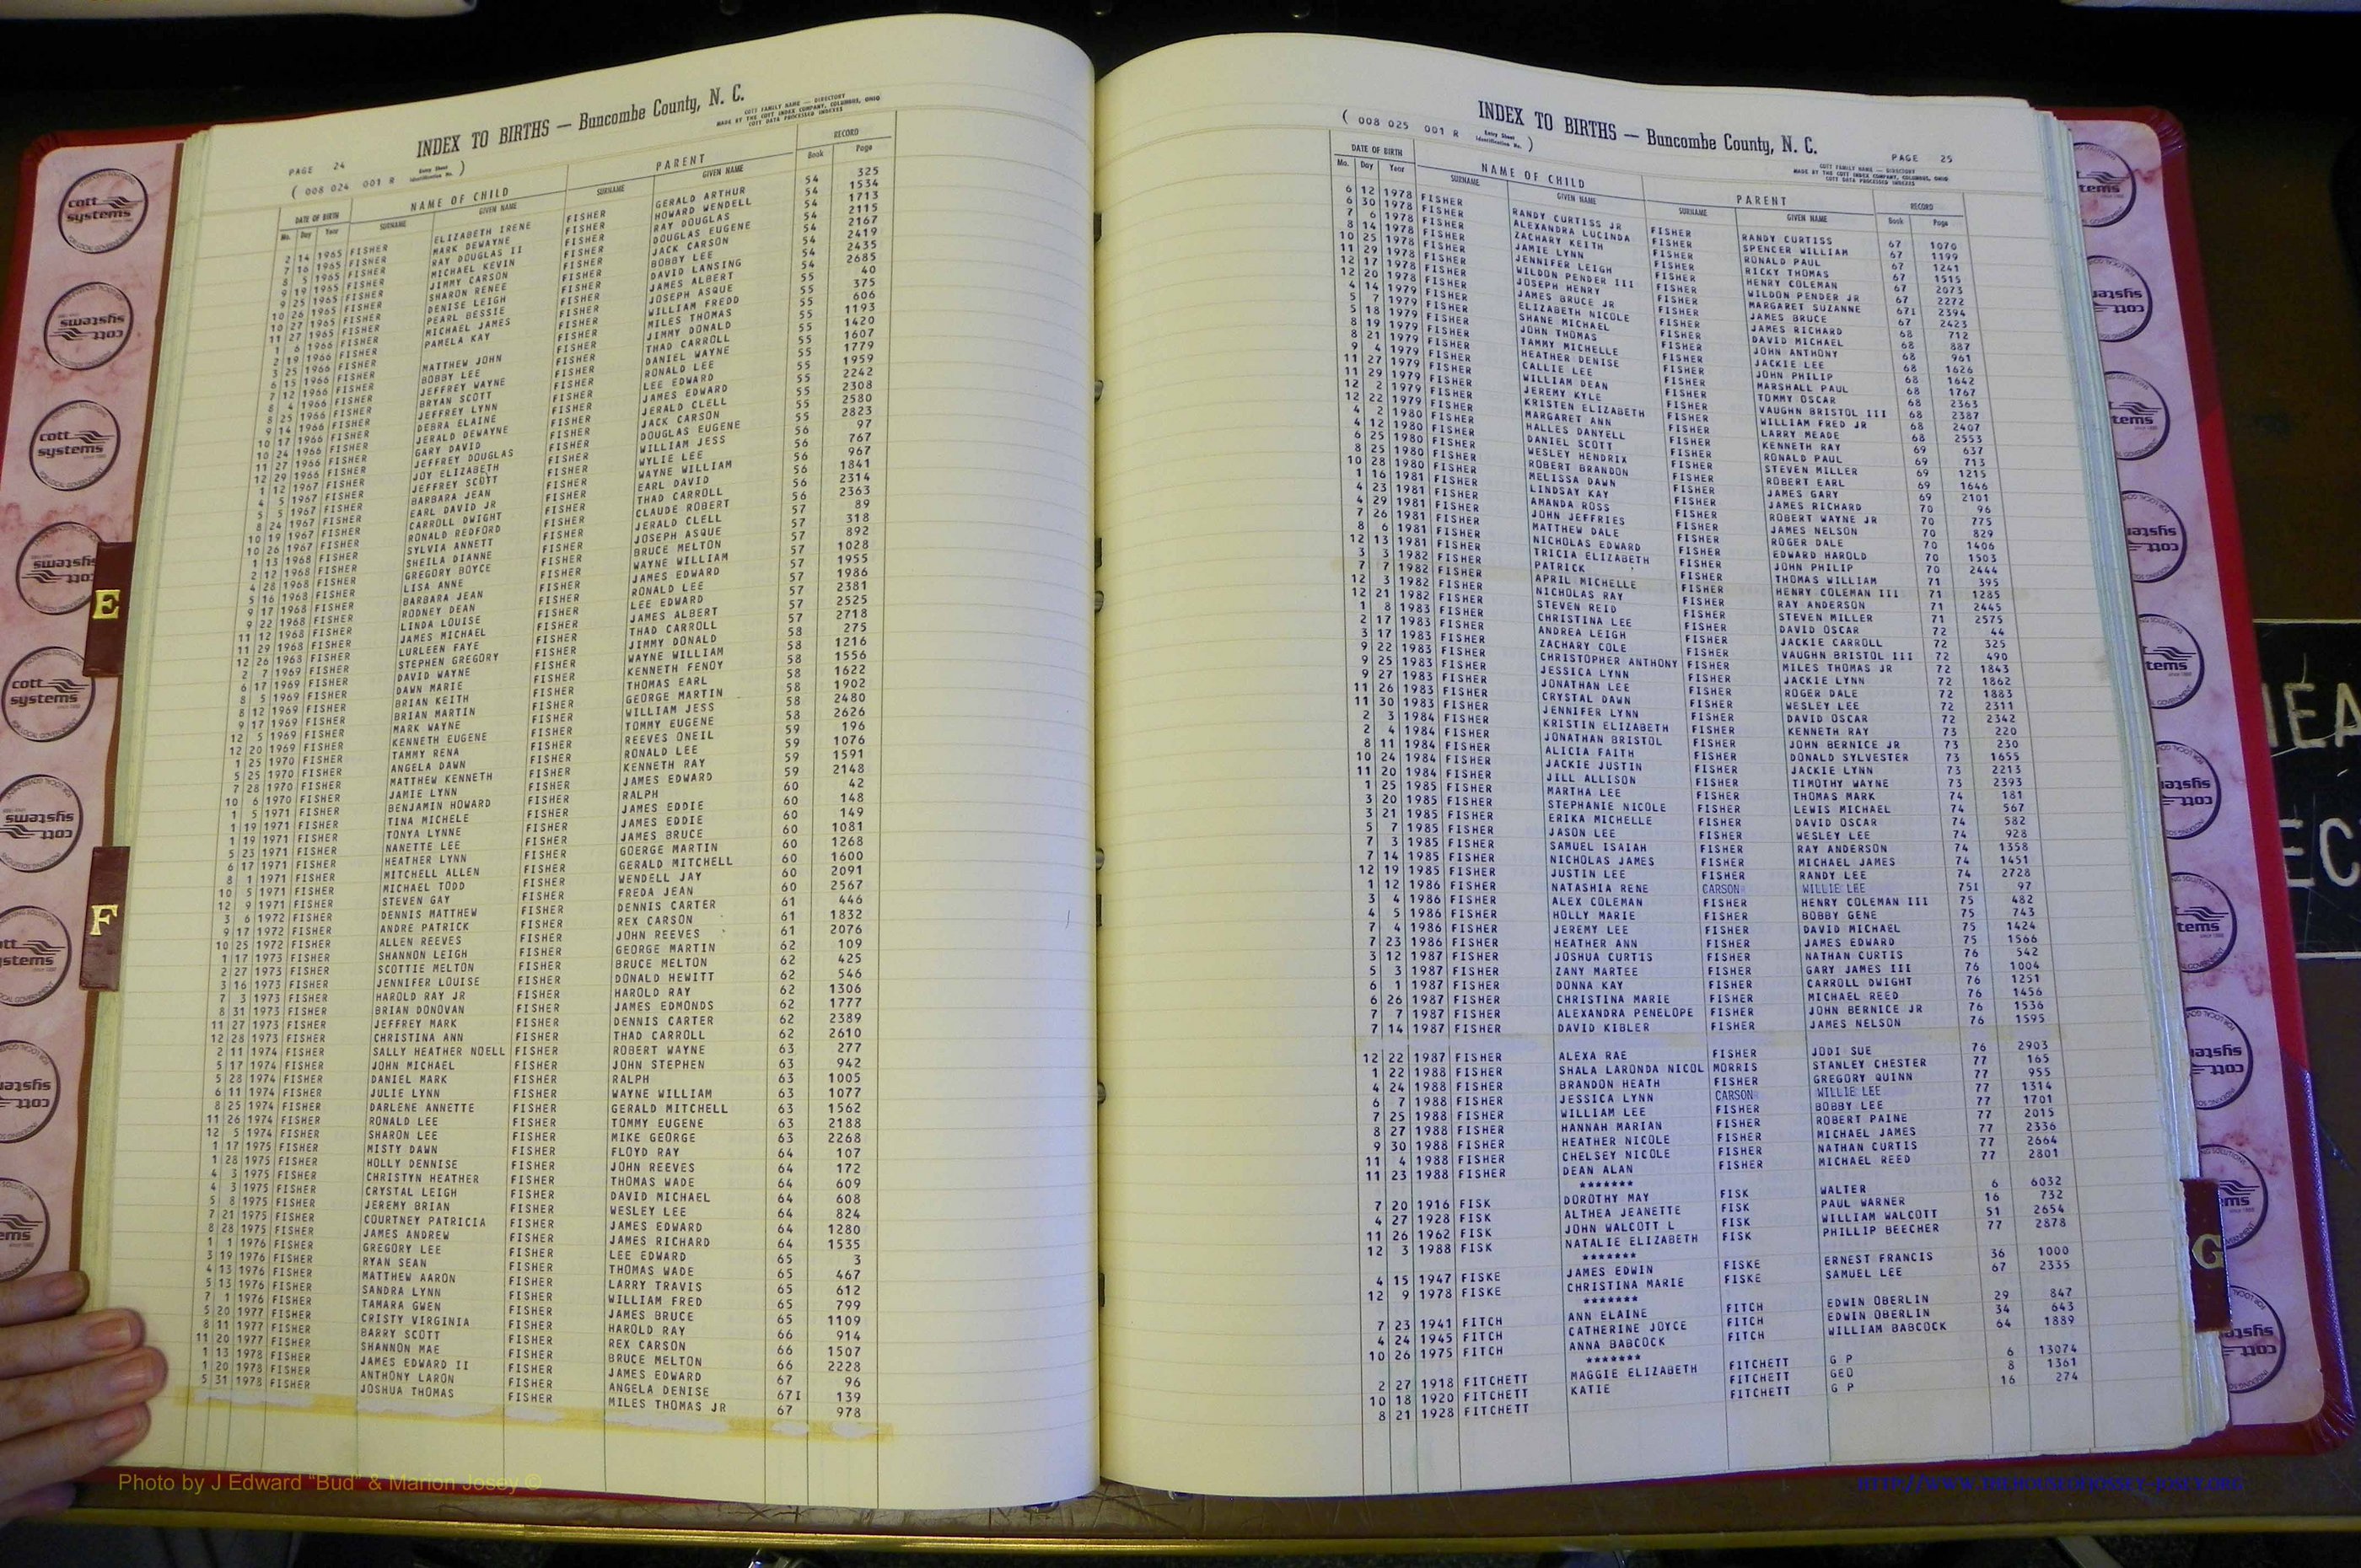 INDEX TO BIRTHS — Buncombe County, N. C.
COTT FAMILY NAME — DIRECTORY
MADE BY THE COTT INDEX COMPANY, COLUMBUS, OHIO
COTT DATA PROCESSED INDEXES
PAGE 24
( 008 024 001 R Entry Sheet Identification No. )
DATE OF BIRTH NAME OF CHILD PARENT RECORD
Mo. Day Year SURNAME GIVEN NAME SURNAME GIVEN NAME Book Page
2 14 1965 FISHER ELIZABETH IRENE FISHER GERALD ARTHUR 54 325
7 16 1965 FISHER MARK DEWAYNE FISHER HOWARD WENDELL 54 1534
8 5 1965 FISHER RAY DOUGLAS II FISHER RAY DOUGLAS 54 1713
9 19 1965 FISHER MICHAEL KEVIN FISHER DOUGLAS EUGENE 54 2115
9 25 1965 FISHER JIMMY CARSON FISHER JACK CARSON 54 2167
10 26 1965 FISHER SHARON RENEE FISHER BOBBY LEE 54 2419
10 27 1965 FISHER DENISE LEIGH FISHER DAVID LANSING 54 2435
11 27 1965 FISHER PEARL BESSIE FISHER JAMES ALBERT 54 2685
1 6 1966 FISHER MICHAEL JAMES FISHER JOSEPH ASQUE 55 40
2 19 1966 FISHER PAMELA KAY FISHER WILLIAM FREDD 55 375
3 25 1966 FISHER FISHER MILES THOMAS 55 606
6 15 1966 FISHER MATTHEW JOHN FISHER JIMMY DONALD 55 1193
7 12 1966 FISHER BOBBY LEE FISHER THAD CARROLL 55 1420
8 4 1966 FISHER JEFFREY WAYNE FISHER DANIEL WAYNE 55 1607
8 25 1966 FISHER BRYAN SCOTT FISHER RONALD LEE 55 1779
9 14 1966 FISHER JEFFREY LYNN FISHER LEE EDWARD 55 1959
10 17 1966 FISHER DEBRA ELAINE FISHER JAMES EDWARD 55 2242
10 24 1966 FISHER JERALD DEWAYNE FISHER JERALD CLELL 55 2308
11 27 1966 FISHER GARY DAVID FISHER JACK CARSON 55 2580
12 29 1966 FISHER JEFFREY DOUGLAS FISHER DOUGLAS EUGENE 55 2823
1 12 1967 FISHER JOY ELIZABETH FISHER WILLIAM JESS 56 97
4 5 1967 FISHER JEFFREY SCOTT FISHER WYLIE LEE 56 767
5 5 1967 FISHER BARBARA JEAN FISHER WAYNE WILLIAM 56 967
8 24 1967 FISHER EARL DAVID JR FISHER EARL DAVID 56 1841
10 19 1967 FISHER CARROLL DWIGHT FISHER THAD CARROLL 56 2314
10 26 1967 FISHER RONALD REDFORD FISHER CLAUDE ROBERT 56 2363
1 13 1968 FISHER SYLVIA ANNETT FISHER JERALD CLELL 57 89
2 12 1968 FISHER SHEILA DIANNE FISHER JOSEPH ASQUE 57 318
4 28 1968 FISHER GREGORY BOYCE FISHER BRUCE MELTON 57 892
5 16 1968 FISHER LISA ANNE FISHER WAYNE WILLIAM 57 1028
9 17 1968 FISHER BARBARA JEAN FISHER JAMES EDWARD 57 1955
9 22 1968 FISHER RODNEY DEAN FISHER RONALD LEE 57 1986
11 12 1968 FISHER LINDA LOUISE FISHER LEE EDWARD 57 2381
11 29 1968 FISHER JAMES MICHAEL FISHER JAMES ALBERT 57 2525
12 26 1968 FISHER LURLEEN FAYE FISHER THAD CARROLL 57 2718
2 7 1969 FISHER STEPHEN GREGORY FISHER JIMMY DONALD 58 275
6 17 1969 FISHER DAVID WAYNE FISHER WAYNE WILLIAM 58 1216
8 5 1969 FISHER DAWN MARIE FISHER KENNETH FENOY 58 1556
8 12 1969 FISHER BRIAN KEITH FISHER THOMAS EARL 58 1622
9 17 1969 FISHER BRIAN MARTIN FISHER GEORGE MARTIN 58 1902
12 5 1969 FISHER MARK WAYNE FISHER WILLIAM JESS 58 2480
12 20 1969 FISHER KENNETH EUGENE FISHER TOMMY EUGENE 58 2626
1 25 1970 FISHER TAMMY RENA FISHER REEVES ONEIL 59 196
5 25 1970 FISHER ANGELA DAWN FISHER RONALD LEE 59 1076
7 28 1970 FISHER MATTHEW KENNETH FISHER KENNETH RAY 59 1591
10 6 1970 FISHER JAMIE LYNN FISHER JAMES EDWARD 59 2148
1 5 1971 FISHER BENJAMIN HOWARD FISHER RALPH 60 42
1 19 1971 FISHER TINA MICHELE FISHER JAMES EDDIE 60 148
1 19 1971 FISHER TONYA LYNNE FISHER JAMES EDDIE 60 149
5 23 1971 FISHER NANETTE LEE FISHER JAMES BRUCE 60 1081
6 17 1971 FISHER HEATHER LYNN FISHER GOERGE MARTIN 60 1268
8 1 1971 FISHER MITCHELL ALLEN FISHER GERALD MITCHELL 60 1600
10 5 1971 FISHER MICHAEL TODD FISHER WENDELL JAY 60 2091
12 9 1971 FISHER STEVEN GAY FISHER FREDA JEAN 60 2567
3 6 1972 FISHER DENNIS MATTHEW FISHER DENNIS CARTER 61 446
9 17 1972 FISHER ANDRE PATRICK FISHER REX CARSON 61 1832
10 25 1972 FISHER ALLEN REEVES FISHER JOHN REEVES 61 2076
1 17 1973 FISHER SHANNON LEIGH FISHER GEORGE MARTIN 62 109
2 27 1973 FISHER SCOTTIE MELTON FISHER BRUCE MELTON 62 425
3 16 1973 FISHER JENNIFER LOUISE FISHER DONALD HEWITT 62 546
7 3 1973 FISHER HAROLD RAY JR FISHER HAROLD RAY 62 1306
8 31 1973 FISHER BRIAN DONOVAN FISHER JAMES EDMONDS 62 1777
11 27 1973 FISHER JEFFREY MARK FISHER DENNIS CARTER 62 2389
12 28 1973 FISHER CHRISTINA ANN FISHER THAD CARROLL 62 2610
2 11 1974 FISHER SALLY HEATHER NOELL FISHER ROBERT WAYNE 63 277
5 17 1974 FISHER JOHN MICHAEL FISHER JOHN STEPHEN 63 942
5 28 1974 FISHER DANIEL MARK FISHER RALPH 63 1005
6 11 1974 FISHER JULIE LYNN FISHER WAYNE WILLIAM 63 1077
8 25 1974 FISHER DARLENE ANNETTE FISHER GERALD MITCHELL 63 1562
11 26 1974 FISHER RONALD LEE FISHER TOMMY EUGENE 63 2188
12 5 1974 FISHER SHARON LEE FISHER MIKE GEORGE 63 2268
1 17 1975 FISHER MISTY DAWN FISHER FLOYD RAY 64 107
1 28 1975 FISHER HOLLY DENNISE FISHER JOHN REEVES 64 172
4 3 1975 FISHER CHRISTYN HEATHER FISHER THOMAS WADE 64 609
4 3 1975 FISHER CRYSTAL LEIGH FISHER DAVID MICHAEL 64 608
5 8 1975 FISHER JEREMY BRIAN FISHER WESLEY LEE 64 824
7 21 1975 FISHER COURTNEY PATRICIA FISHER JAMES EDWARD 64 1280
8 28 1975 FISHER JAMES ANDREW FISHER JAMES RICHARD 64 1535
1 1 1976 FISHER GREGORY LEE FISHER LEE EDWARD 65 3
3 19 1976 FISHER RYAN SEAN FISHER THOMAS WADE 65 467
4 13 1976 FISHER MATTHEW AARON FISHER LARRY TRAVIS 65 612
5 13 1976 FISHER SANDRA LYNN FISHER WILLIAM FRED 65 799
7 1 1976 FISHER TAMARA GWEN FISHER JAMES BRUCE 65 1109
5 20 1977 FISHER CRISTY VIRGINIA FISHER HAROLD RAY 66 914
8 11 1977 FISHER BARRY SCOTT FISHER REX CARSON 66 1507
11 20 1977 FISHER SHANNON MAE FISHER BRUCE MELTON 66 2228
1 13 1978 FISHER JAMES EDWARD II FISHER JAMES EDWARD 67 96
1 20 1978 FISHER ANTHONY LARON FISHER ANGELA DENISE 67I 139
5 31 1978 FISHER JOSHUA THOMAS FISHER MILES THOMAS JR 67 978
INDEX TO BIRTHS — Buncombe County, N. C.
COTT FAMILY NAME — DIRECTORY
MADE BY THE COTT INDEX COMPANY, COLUMBUS, OHIO
COTT DATA PROCESSED INDEXES
PAGE 25
( 008 025 001 R Entry Sheet Identification No. )
DATE OF BIRTH NAME OF CHILD PARENT RECORD
Mo. Day Year SURNAME GIVEN NAME SURNAME GIVEN NAME Book Page
6 12 1978 FISHER RANDY CURTISS JR FISHER RANDY CURTISS 67 1070
6 30 1978 FISHER ALEXANDRA LUCINDA FISHER SPENCER WILLIAM 67 1199
7 6 1978 FISHER ZACHARY KEITH FISHER RONALD PAUL 67 1241
8 14 1978 FISHER JAMIE LYNN FISHER RICKY THOMAS 67 1515
10 25 1978 FISHER JENNIFER LEIGH FISHER HENRY COLEMAN 67 2073
11 29 1978 FISHER WILDON PENDER III FISHER WILDON PENDER JR 67 2272
12 17 1978 FISHER JOSEPH HENRY FISHER MARGARET SUZANNE 67I 2394
12 20 1978 FISHER JAMES BRUCE JR FISHER JAMES BRUCE 67 2423
4 14 1979 FISHER ELIZABETH NICOLE FISHER JAMES RICHARD 68 712
5 7 1979 FISHER SHANE MICHAEL FISHER DAVID MICHAEL 68 887
5 18 1979 FISHER JOHN THOMAS FISHER JOHN ANTHONY 68 961
8 19 1979 FISHER TAMMY MICHELLE FISHER JACKIE LEE 68 1626
8 21 1979 FISHER HEATHER DENISE FISHER JOHN PHILIP 68 1642
9 4 1979 FISHER CALLIE LEE FISHER MARSHALL PAUL 68 1767
11 27 1979 FISHER WILLIAM DEAN FISHER TOMMY OSCAR 68 2363
11 29 1979 FISHER JEREMY KYLE FISHER VAUGHN BRISTOL III 68 2387
12 2 1979 FISHER KRISTEN ELIZABETH FISHER WILLIAM FRED JR 68 2407
12 22 1979 FISHER MARGARET ANN FISHER LARRY MEADE 68 2553
4 2 1980 FISHER HALLES DANYELL FISHER KENNETH RAY 69 637
4 12 1980 FISHER DANIEL SCOTT FISHER RONALD PAUL 69 713
6 25 1980 FISHER WESLEY HENDRIX FISHER STEVEN MILLER 69 1215
8 25 1980 FISHER ROBERT BRANDON FISHER ROBERT EARL 69 1646
10 28 1980 FISHER MELISSA DAWN FISHER JAMES GARY 69 2101
1 16 1981 FISHER LINDSAY KAY FISHER JAMES RICHARD 70 96
4 23 1981 FISHER AMANDA ROSS FISHER ROBERT WAYNE JR 70 775
4 29 1981 FISHER JOHN JEFFRIES FISHER JAMES NELSON 70 829
7 26 1981 FISHER MATTHEW DALE FISHER ROGER DALE 70 1406
8 6 1981 FISHER NICHOLAS EDWARD FISHER EDWARD HAROLD 70 1503
12 13 1981 FISHER TRICIA ELIZABETH FISHER JOHN PHILIP 70 2444
3 3 1982 FISHER PATRICK FISHER THOMAS WILLIAM 71 395
7 7 1982 FISHER APRIL MICHELLE FISHER HENRY COLEMAN III 71 1285
12 3 1982 FISHER NICHOLAS RAY FISHER RAY ANDERSON 71 2445
12 21 1982 FISHER STEVEN REID FISHER STEVEN MILLER 71 2575
1 8 1983 FISHER CHRISTINA LEE FISHER DAVID OSCAR 72 44
2 17 1983 FISHER ANDREA LEIGH FISHER JACKIE CARROLL 72 325
3 17 1983 FISHER ZACHARY COLE FISHER VAUGHN BRISTOL III 72 490
9 22 1983 FISHER CHRISTOPHER ANTHONY FISHER MILES THOMAS JR 72 1843
9 25 1983 FISHER JESSICA LYNN FISHER JACKIE LYNN 72 1862
9 27 1983 FISHER JONATHAN LEE FISHER ROGER DALE 72 1883
11 26 1983 FISHER CRYSTAL DAWN FISHER WESLEY LEE 72 2311
11 30 1983 FISHER JENNIFER LYNN FISHER DAVID OSCAR 72 2342
2 3 1984 FISHER KRISTIN ELIZABETH FISHER KENNETH RAY 73 220
2 4 1984 FISHER JONATHAN BRISTOL FISHER JOHN BERNICE JR 73 230
8 11 1984 FISHER ALICIA FAITH FISHER DONALD SYLVESTER 73 1655
10 24 1984 FISHER JACKIE JUSTIN FISHER JACKIE LYNN 73 2213
11 20 1984 FISHER JILL ALLISON FISHER TIMOTHY WAYNE 73 2393
1 25 1985 FISHER MARTHA LEE FISHER THOMAS MARK 74 181
3 20 1985 FISHER STEPHANIE NICOLE FISHER LEWIS MICHAEL 74 567
3 21 1985 FISHER ERIKA MICHELLE FISHER DAVID OSCAR 74 582
5 7 1985 FISHER JASON LEE FISHER WESLEY LEE 74 928
7 3 1985 FISHER SAMUEL ISAIAH FISHER RAY ANDERSON 74 1358
7 14 1985 FISHER NICHOLAS JAMES FISHER MICHAEL JAMES 74 1451
12 19 1985 FISHER JUSTIN LEE FISHER RANDY LEE 74 2728
1 12 1986 FISHER NATASHIA RENE CARSON WILLIE LEE 75I 97
3 4 1986 FISHER ALEX COLEMAN FISHER HENRY COLEMAN III 75 482
4 5 1986 FISHER HOLLY MARIE FISHER BOBBY GENE 75 743
7 4 1986 FISHER JEREMY LEE FISHER DAVID MICHAEL 75 1424
7 23 1986 FISHER HEATHER ANN FISHER JAMES EDWARD 75 1566
3 12 1987 FISHER JOSHUA CURTIS FISHER NATHAN CURTIS 76 542
5 3 1987 FISHER ZANY MARTEE FISHER GARY JAMES III 76 1004
6 1 1987 FISHER DONNA KAY FISHER CARROLL DWIGHT 76 1251
6 26 1987 FISHER CHRISTINA MARIE FISHER MICHAEL REED 76 1456
7 7 1987 FISHER ALEXANDRA PENELOPE FISHER JOHN BERNICE JR 76 1536
7 14 1987 FISHER DAVID KIBLER FISHER JAMES NELSON 76 1595
12 22 1987 FISHER ALEXA RAE FISHER JODI SUE 76 2903
1 22 1988 FISHER SHALA LARONDA NICOL MORRIS STANLEY CHESTER 77 165
4 24 1988 FISHER BRANDON HEATH FISHER GREGORY QUINN 77 955
6 7 1988 FISHER JESSICA LYNN CARSON WILLIE LEE 77 1314
7 25 1988 FISHER WILLIAM LEE FISHER BOBBY LEE 77 1701
8 27 1988 FISHER HANNAH MARIAN FISHER ROBERT PAINE 77 2015
9 30 1988 FISHER HEATHER NICOLE FISHER MICHAEL JAMES 77 2336
11 4 1988 FISHER CHELSEY NICOLE FISHER NATHAN CURTIS 77 2664
11 23 1988 FISHER DEAN ALAN FISHER MICHAEL REED 77 2801
*******
7 20 1916 FISK DOROTHY MAY FISK WALTER 6 6032
4 27 1928 FISK ALTHEA JEANETTE FISK PAUL WARNER 16 732
11 26 1962 FISK JOHN WALCOTT L FISK WILLIAM WALCOTT 51 2654
12 3 1988 FISK NATALIE ELIZABETH FISK PHILLIP BEECHER 77 2878
*******
4 15 1947 FISKE JAMES EDWIN FISKE ERNEST FRANCIS 36 1000
12 9 1978 FISKE CHRISTINA MARIE FISKE SAMUEL LEE 67 2335
*******
7 23 1941 FITCH ANN ELAINE FITCH EDWIN OBERLIN 29 847
4 24 1945 FITCH CATHERINE JOYCE FITCH EDWIN OBERLIN 34 643
10 26 1975 FITCH ANNA BABCOCK FITCH WILLIAM BABCOCK 64 1889
*******
2 27 1918 FITCHETT MAGGIE ELIZABETH FITCHETT G P 6 13074
10 18 1920 FITCHETT KATIE FITCHETT GEO 8 1361
8 21 1928 FITCHETT FITCHETT G P 16 274
E
F
G
cott systems
Photo by J Edward "Bud" & Marion Josey ©
HTTP://WWW.THEHOUSEOFJOSSEY-JOSEY.ORG